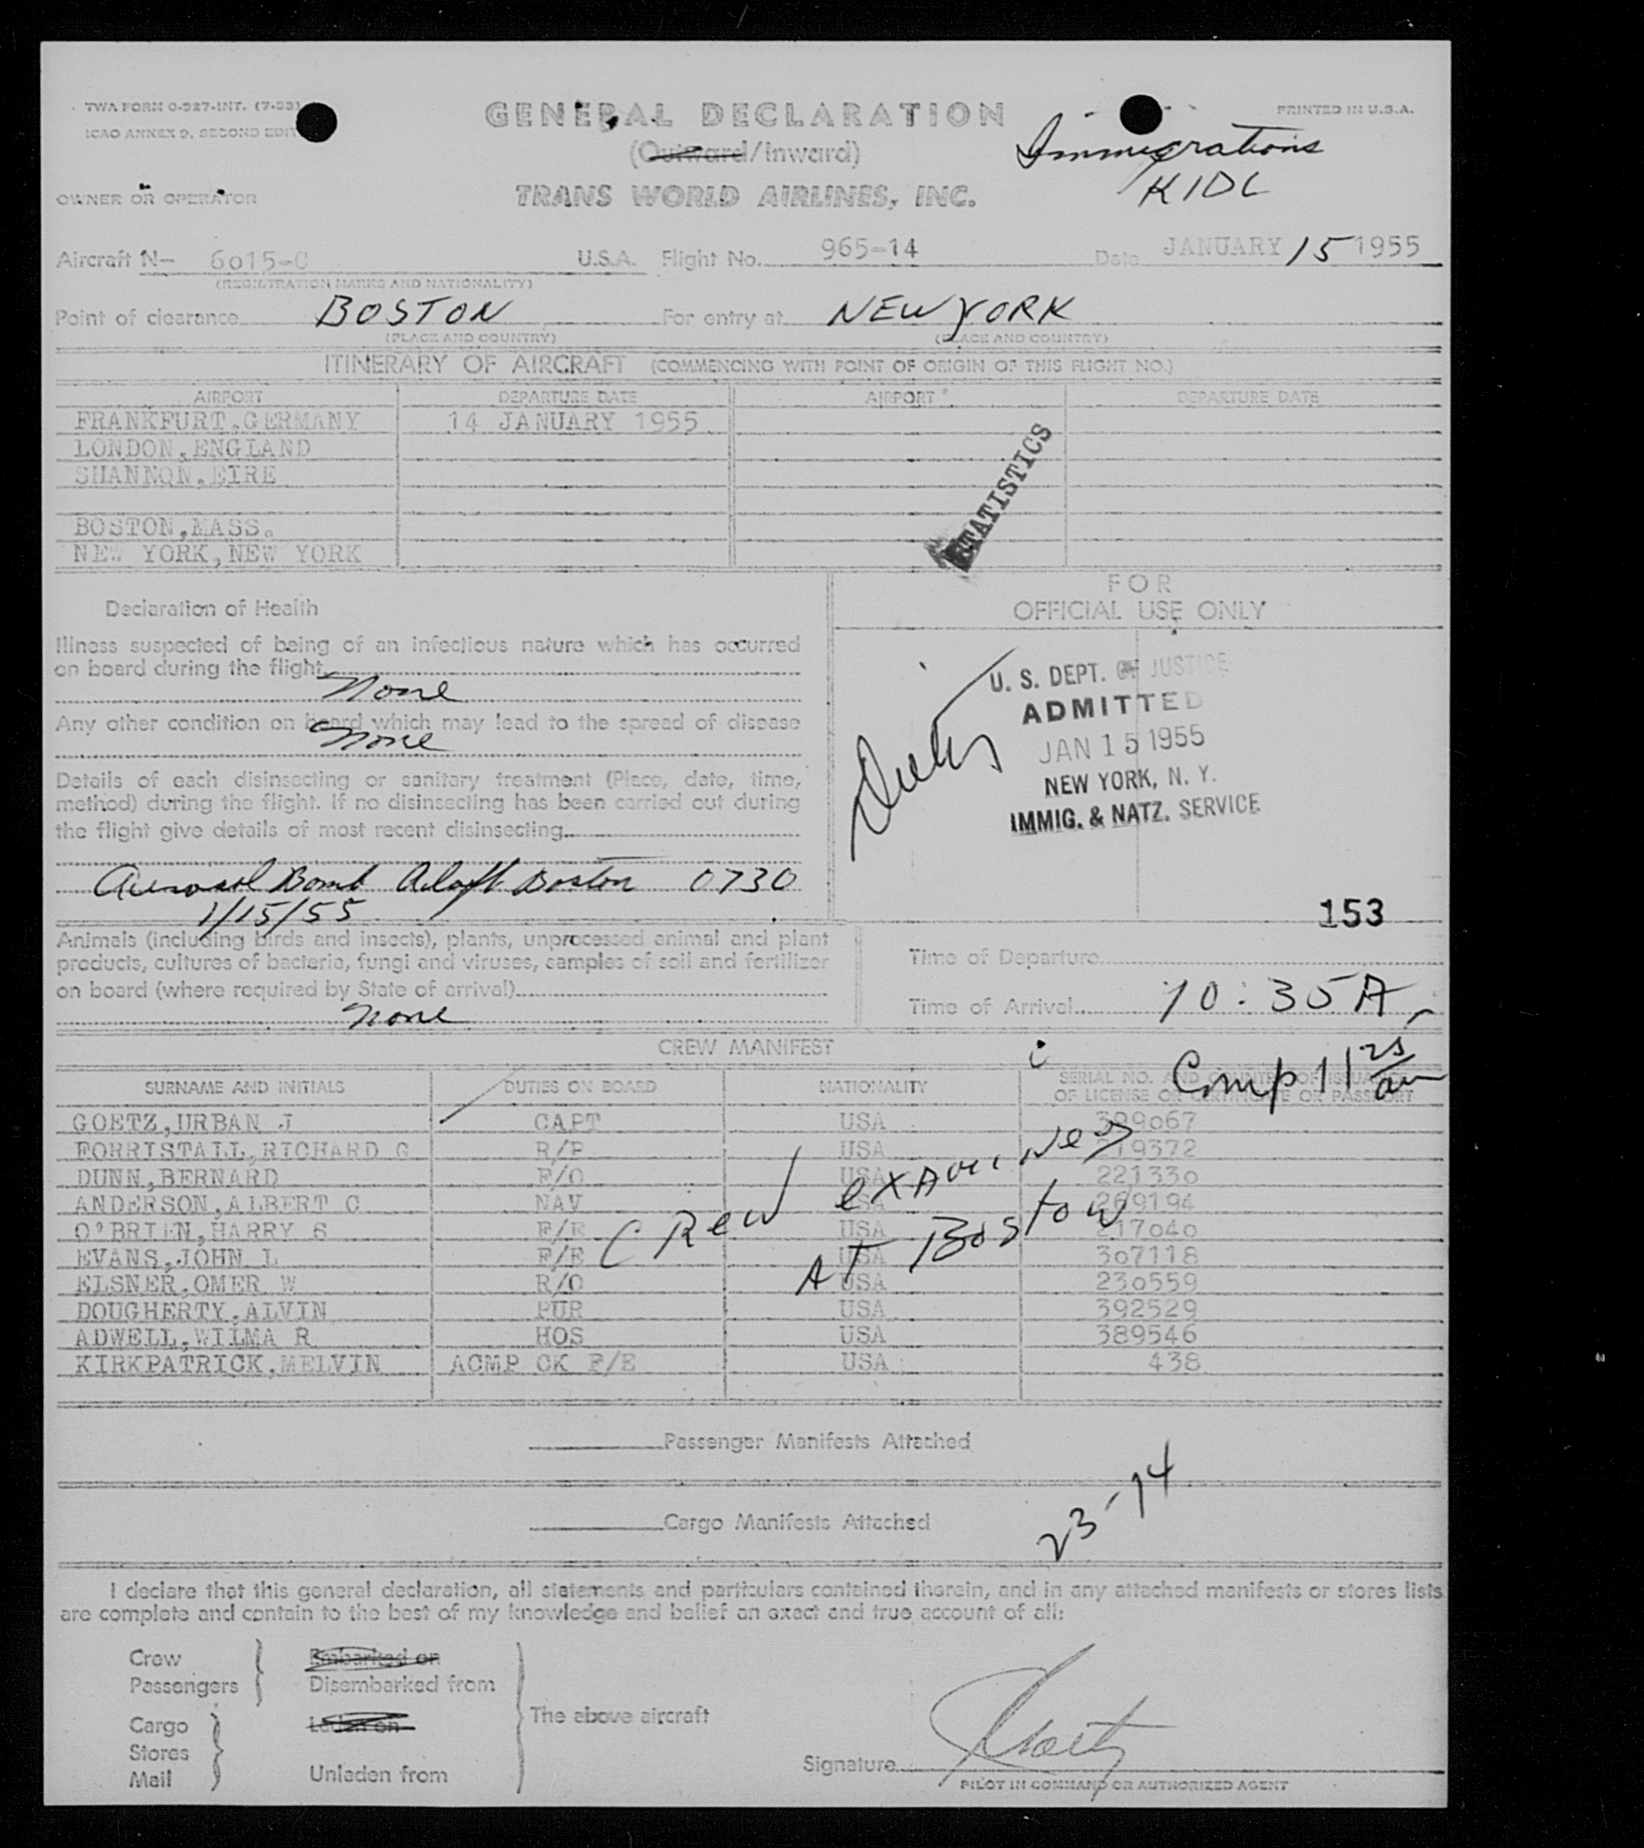 TWA FORM O-927-INT. (7-53)
ICAO ANNEX 9, SECOND EDIT
GENERAL DECLARATION
PRINTED IN U.S.A.
(Outward/Inward)
Immigrations
KIDL
OWNER OR OPERATOR
TRANS WORLD AIRLINES, INC.
Aircraft N- 6015-C U.S.A. Flight No. 965-14 Date JANUARY 15 1955
(REGISTRATION MARKS AND NATIONALITY)
Point of clearance BOSTON For entry at NEW YORK
(PLACE AND COUNTRY) (PLACE AND COUNTRY)
ITINERARY OF AIRCRAFT (COMMENCING WITH POINT OF ORIGIN OF THIS FLIGHT NO.)
AIRPORT DEPARTURE DATE AIRPORT DEPARTURE DATE
FRANKFURT,GERMANY 14 JANUARY 1955
LONDON,ENGLAND
SHANNON,EIRE
BOSTON,MASS.
NEW YORK,NEW YORK
STATISTICS
Declaration of Health
Illness suspected of being of an infectious nature which has occurred
on board during the flight
None
Any other condition on board which may lead to the spread of disease
None
Details of each disinsecting or sanitary treatment (Place, date, time,
method) during the flight. If no disinsecting has been carried out during
the flight give details of most recent disinsecting
Aerosol Bomb Aloft Boston 0730
1/15/55
FOR
OFFICIAL USE ONLY
U. S. DEPT. OF JUSTICE
ADMITTED
JAN 15 1955
NEW YORK, N. Y.
IMMIG. & NATZ. SERVICE
153
Animals (including birds and insects), plants, unprocessed animal and plant
products, cultures of bacteria, fungi and viruses, samples of soil and fertilizer
on board (where required by State of arrival)
None
Time of Departure
Time of Arrival 10:35A
Comp 11 25 am
CREW MANIFEST
SURNAME AND INITIALS DUTIES ON BOARD NATIONALITY SERIAL NO. AND COUNTRY OF ISSUE
OF LICENSE OR CERTIFICATE OR PASSPORT
GOETZ,URBAN J CAPT USA 399067
FORRISTALL,RICHARD G R/P USA 19372
DUNN,BERNARD F/O USA 221330
ANDERSON,ALBERT C NAV USA 269194
O'BRIEN,HARRY S F/E USA 217040
EVANS,JOHN L F/E USA 307118
ELSNER,OMER W R/O USA 230559
DOUGHERTY,ALVIN PUR USA 392529
ADWELL,WILMA R HOS USA 389546
KIRKPATRICK,MELVIN ACMP CK F/E USA 438
Crew examined
at Boston
Passenger Manifests Attached
Cargo Manifests Attached
23-14
I declare that this general declaration, all statements and particulars contained therein, and in any attached manifests or stores lists
are complete and contain to the best of my knowledge and belief an exact and true account of all:
Crew
Passengers
Embarked on
Disembarked from
Cargo
Stores
Mail
Laden on
Unladen from
The above aircraft
Signature
PILOT IN COMMAND OR AUTHORIZED AGENT